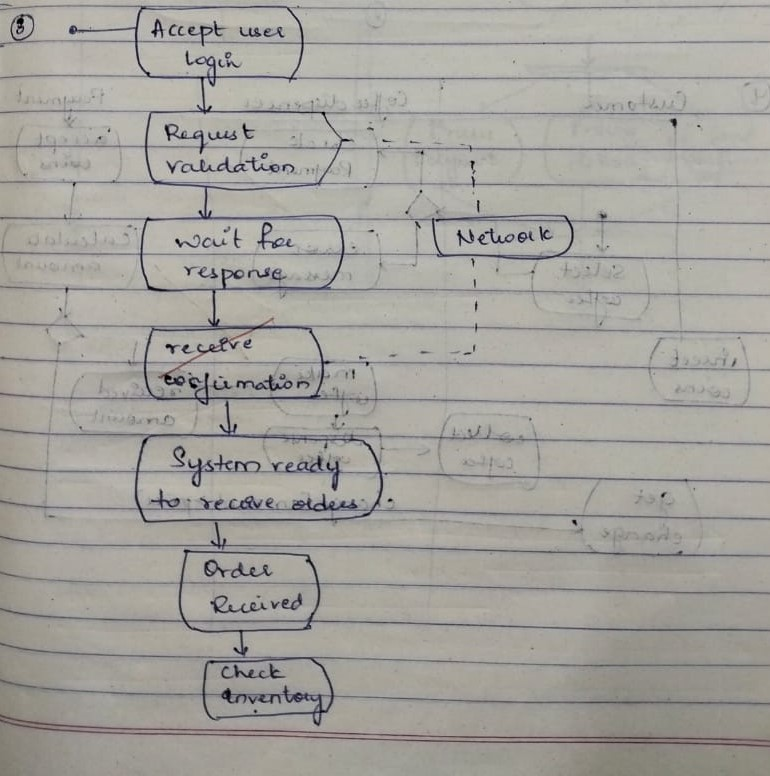 3
Accept user
login
Request
validation
Network
wait for
response
receive
confirmation
System ready
to receive orders.
Order
Received
Check
inventory